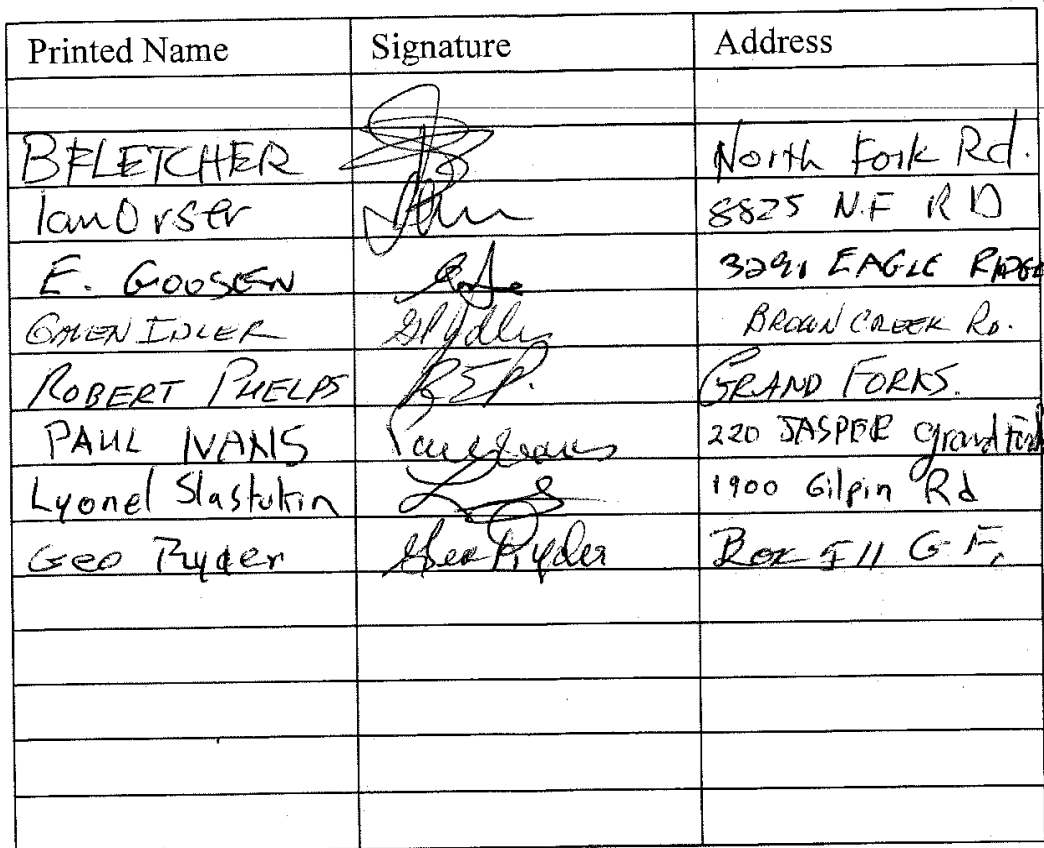 Printed Name Signature Address
B FLETCHER North Fork Rd.
Ian Orser 8825 N.F RD
E. GOOSEN 3291 EAGLE RIDGE
GALEN IDLER BROWN CREEK RD.
ROBERT PHELPS R.E.P. GRAND FORKS.
PAUL IVANS Paul Ivans 220 JASPER Grand Fork
Lyonel Slastukin 1900 Gilpin Rd
Geo Ryder Geo Ryder Box 511 G.F.